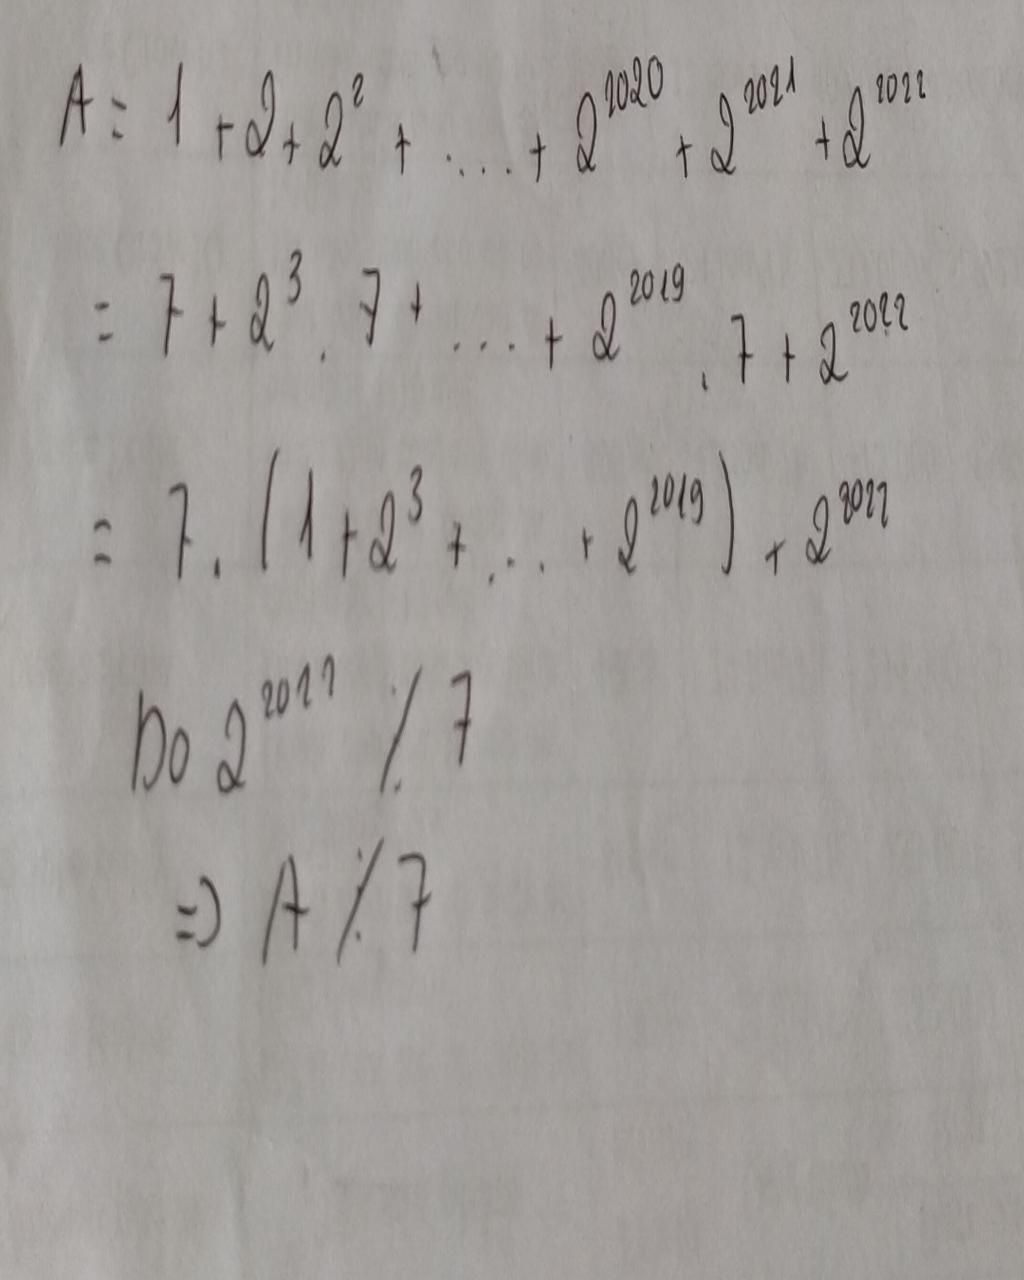 A = 1 + 2 + 2² + .... + 2²⁰²⁰ + 2²⁰²¹ + 2²⁰²²
= 7 + 2³ . 7 + ... + 2²⁰¹⁹ . 7 + 2²⁰²²
= 7 . (1 + 2³ + ... + 2²⁰¹⁹) + 2²⁰²²
Do 2²⁰²² ⋮̸ 7
=> A ⋮̸ 7